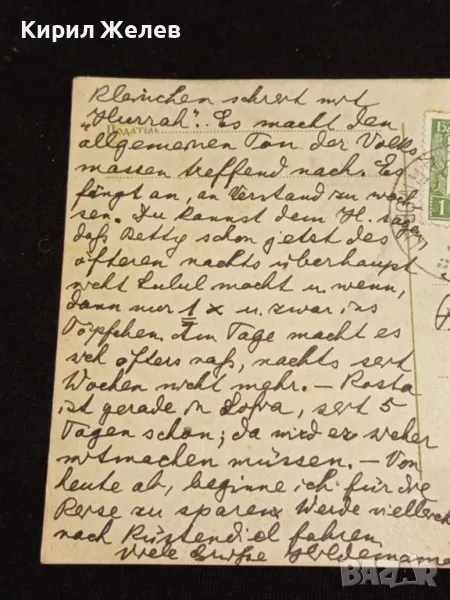 Кирил Желев
Kleinchen schreit mit
"Hurrah". Es macht den
Податель
allgemeinen Ton der Volks
massen treffend nach. Es
fängt an, an Verstand zu wach
sen. Du kannst dem H. sagen,
daß Betty schon jetzt des
öfteren nachts überhaupt
nicht Lulul macht u. wenn,
dann nur 1 x u. zwar ins
Töpfchen. Am Tage macht es
sich öfters naß, nachts seit
Wochen nicht mehr. – Rosta
ist gerade in Sofia, seit 5
Tagen schon; da wird er sicher
mitmachen müssen. – Von
heute ab, beginne ich für die
Reise zu sparen. Werde vielleicht
nach Küstendil fahren.
Viele Grüße Hildemama
БА
1
BAZAR